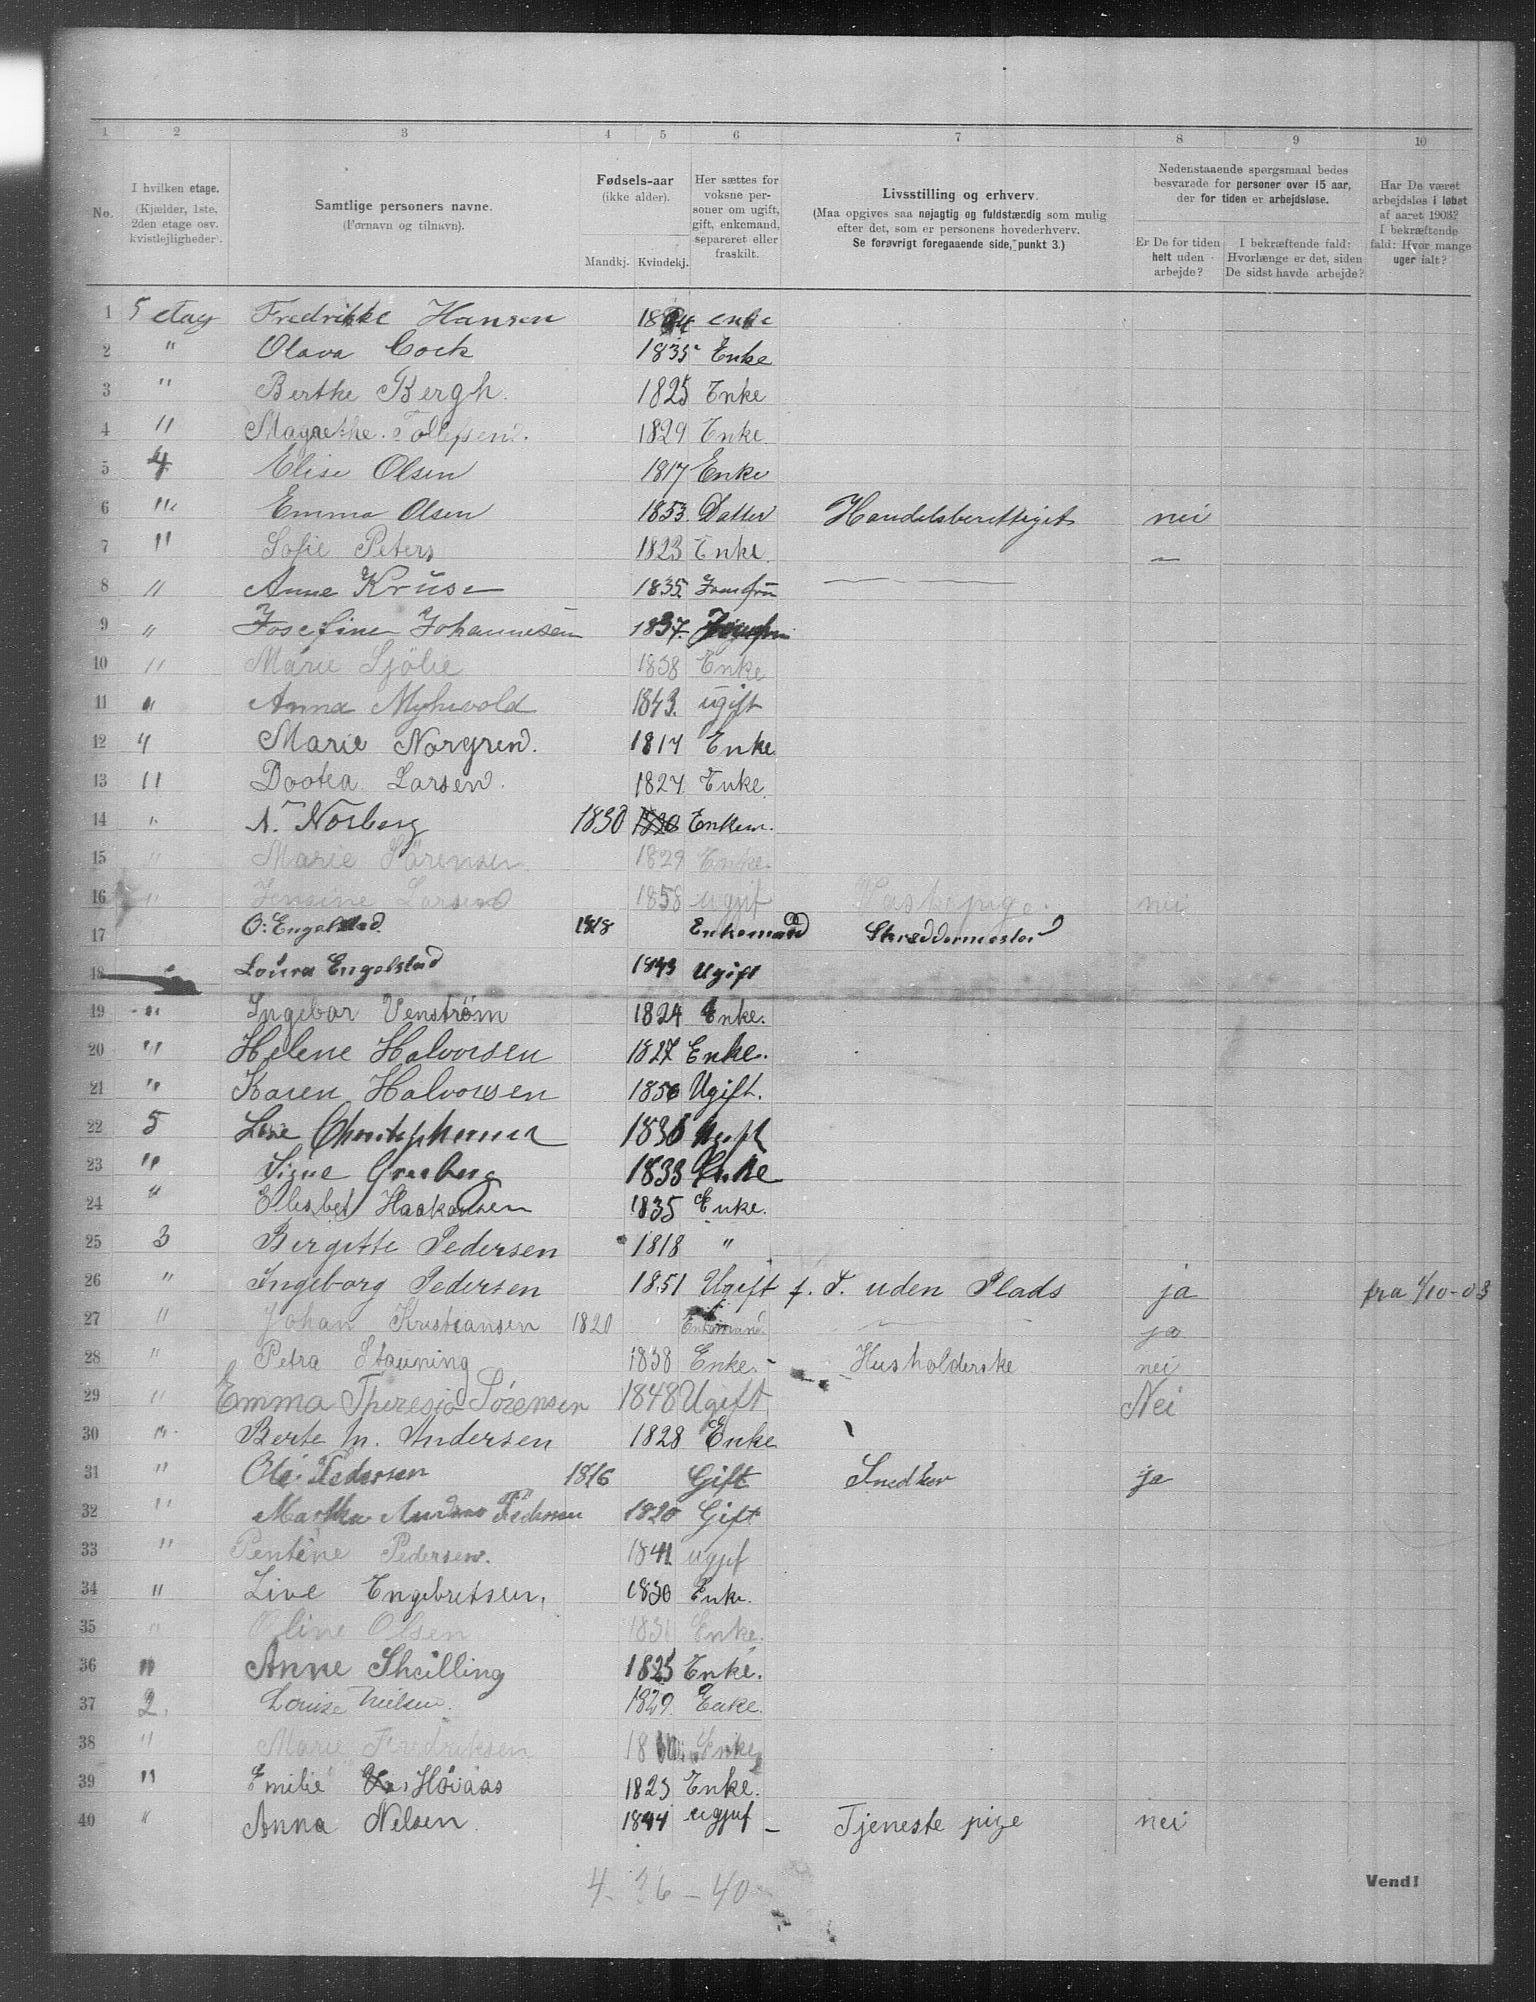 1 2 3 4 5 6 7 8 9 10
No.
I hvilken etage.
(Kjælder, 1ste,
2den etage osv.
kvistlejligheder).
Samtlige personers navne.
(Fornavn og tilnavn).
Fødsels-aar
(ikke alder).
Mandkj. Kvindekj.
Her sættes for
voksne per-
soner om ugift,
gift, enkemand,
separeret eller
fraskilt.
Livsstilling og erhverv.
(Maa opgives saa nøjagtig og fuldstændig som mulig
efter det, som er personens hovederhverv.
Se forøvrigt foregaaende side, punkt 3.)
Nedenstaaende spørgsmaal bedes
besvarede for personer over 15 aar,
der for tiden er arbejdsløse.
Er De for tiden
helt uden
arbejde?
I bekræftende fald:
Hvorlænge er det, siden
De sidst havde arbejde?
Har De været
arbejdsløs i løbet
af aaret 1903?
I bekræftende
fald: Hvor mange
uger ialt?
1 5 etag Fredrikke Hansen enke
2 " Olava Cock 1835 Enke
3 " Berthe Bergh. 1825 Enke
4 " Magrethe Tollefsen. 1829 Enke
5 4 Elise Olsen 1817 Enke
6 " Emma Olsen 1853 Datter Handelsberettiget nei
7 " Sofie Peters 1823 Enke. —
8 " Anne Kruse 1835 Jomfru —
9 " Josefine Johannesen 1837.
10 " Marie Sjölie 1838 Enke
11 " Anna Myhrvold 1843. ugift
12 " Marie Norgren. 1817 Enke
13 " Dootea Larsen. 1827. Enke.
14 " N. Norberg 1830 1830 Enkem.
15 " Marie Sørensen 1829 Enke.
16 " Jensine Larsen 1858 ugjif nei
17 O. Engelstad. 1818 Enkemand Skreddermester
18 " Loura Engelstad 1843 Ugift
19 " Ingebor Venstrøm 1824 Enke.
20 " Helene Halvorsen 1827 Enke.
21 " Karen Halvorsen 1856 Ugift.
22 5 Line 1836 Ugift
23 " Signe 1833 Enke
24 " Elisbet Haakonsen 1835 Enke.
25 3 Birgitte Pedersen 1818 "
26 " Ingeborg Pedersen 1851 Ugift f. T. uden Plads ja fra 1/10-03
27 " Johan Kristiansen 1820 Enkemand — ja
28 " Petra Stauning 1838 Enke. - Husholderske nei
29 " Emma Theresia Sørensen 1848 Ugift Nei
30 " Berte M. Andersen 1828 Enke
31 " Ole Pedersen 1816 Gift Snedker ja
32 " Martha Pedersen 1820 Gift
33 " Pentene Pedersen. 1841 ugjif
34 " Live Engebretsen. 1830 Enke.
35 " Oline Olsen 1831 Enke.
36 " Anne Sheilling 1825 Enke.
37 2. Louise Nielsen. 1829. Enke.
38 " Marie Fredriksen Enke
39 " Emilie Høiaas 1823 Enke.
40 " Anna Nelsen. 1844 ugjuf - Tjeneste pige nei
4 - 36 - 40
Vend!